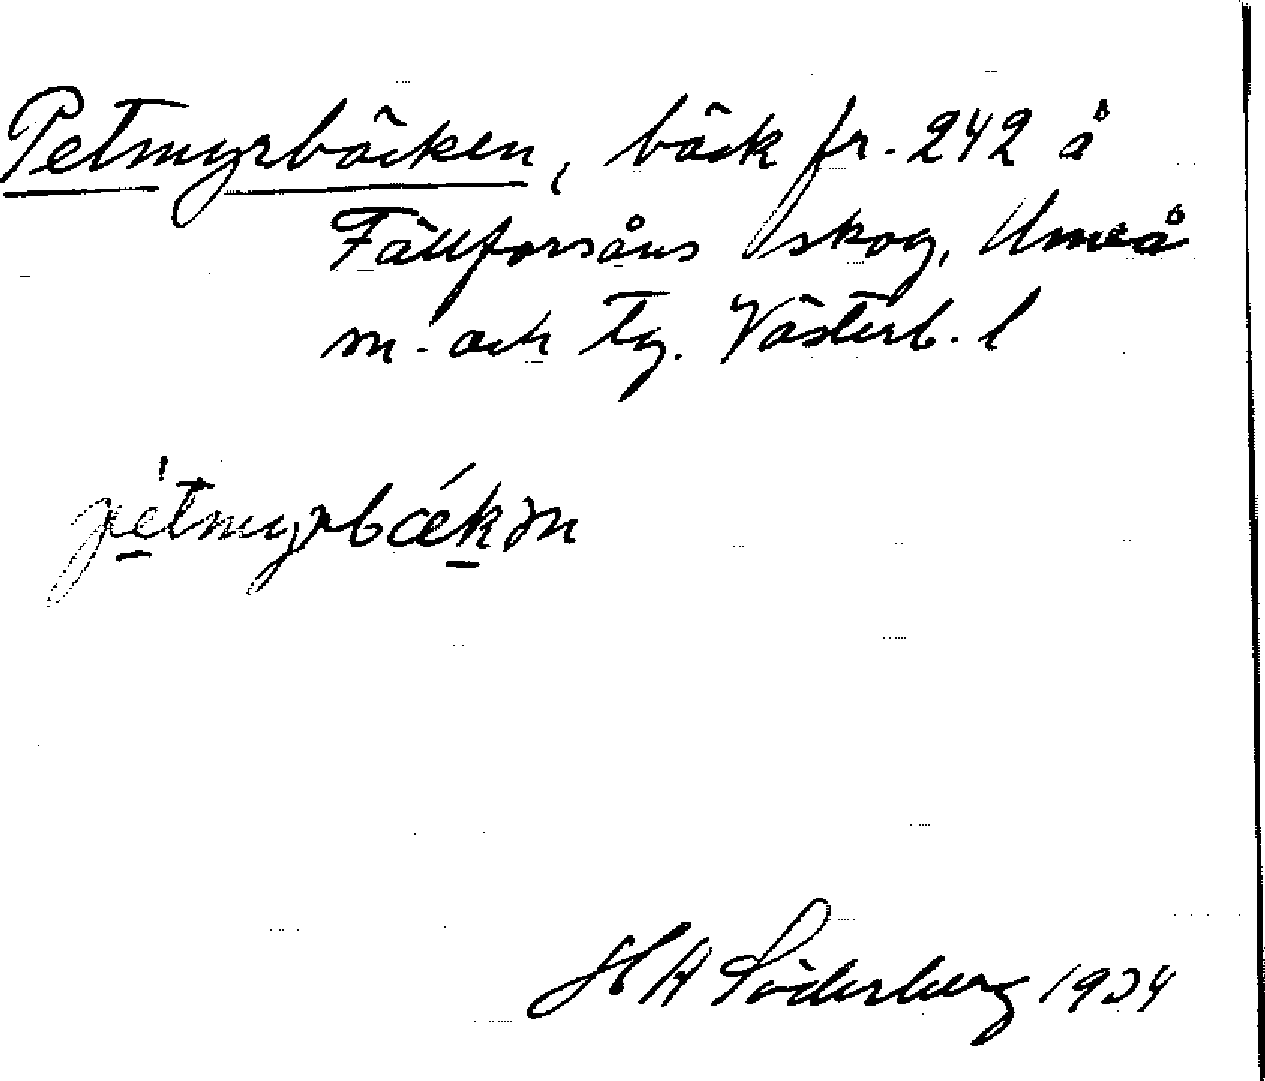 Petmyrbäcken, bäck fr. 242 å
Fällforsåns skog, Umeå
m. och tg. Västerb. l
pètmyrbǽkən
H A Söderberg 1934